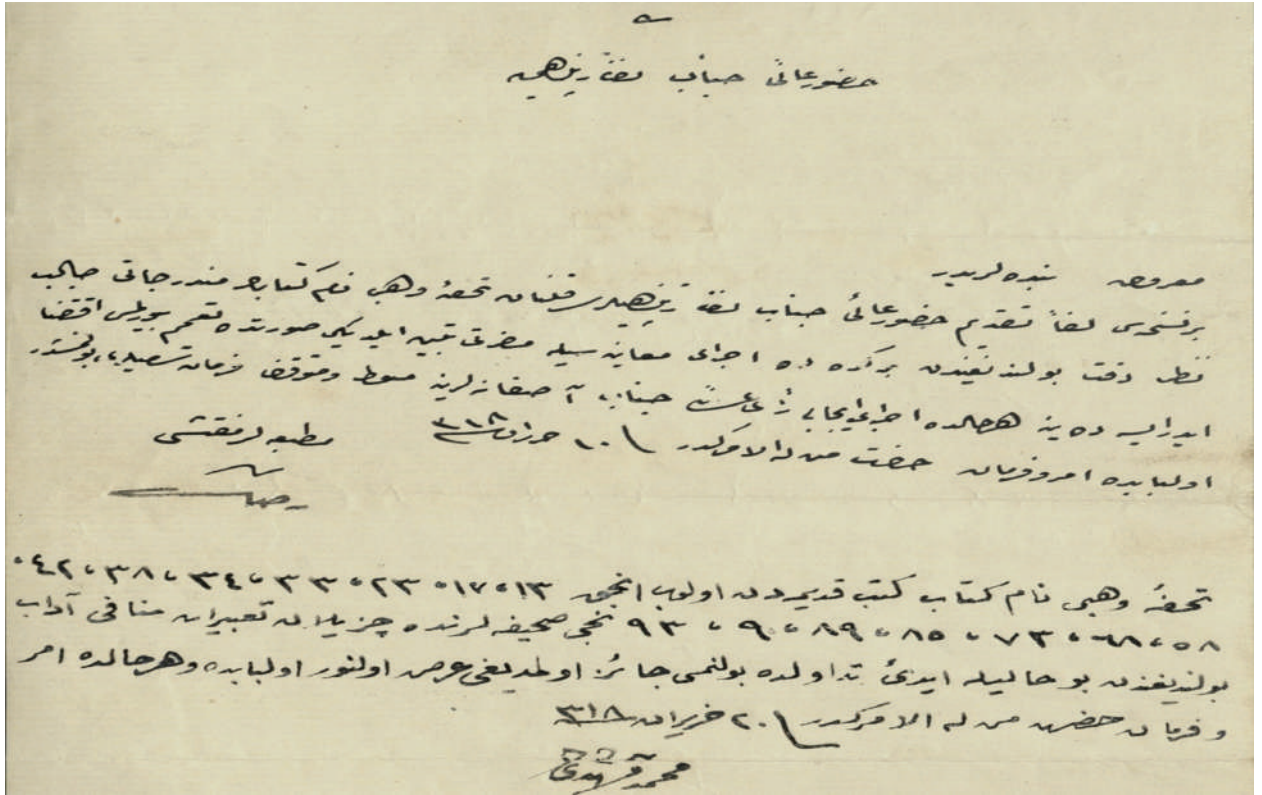 حضور عالئ جناب نظارتپناهی
معروض بنده لریدر
برنسخه‌سی لفاً تقدیم حضور عالئ جناب نظارتپناهیلری قلنان تحفۀ وهبی نام کتابك مندرجاتی جالب
نظر دقت بولندیغندن بر کره ده اجرای معاینه سیله مضرتی تبین ایلدیکی صورتده تعمیم بیورلمسی اقتضا
ایدر ایسه ده ینه هر حالده اجرای ایجابی رأی عالئ جناب آصفانه لرینه منوط و متوقف
اولبابده امر و فرمان حضرت من له الامرکدر ١٠ حزیران ٣١٨
مطبعه لر مفتشی
تحفۀ وهبی نام کتاب کتب قدیمه دن اولوب انجق ١٣، ١٧، ٢٣، ٣٣، ٣٤، ٣٨، ٤٢،
٥٨، ٦٨، ٧٣، ٨٥، ٨٩، ٩٠، ٩٣ نجی صحیفه لرنده چزیلان تعبیرات منافی آداب
بولندیغندن بو حالیله ایدئ تداولده بولنمسی جائز اولمدیغی عرض اولنور اولبابده و هر حالده امر
و فرمان حضرت من له الامرکدر ٢٠ حزیران ٣١٨
محمد